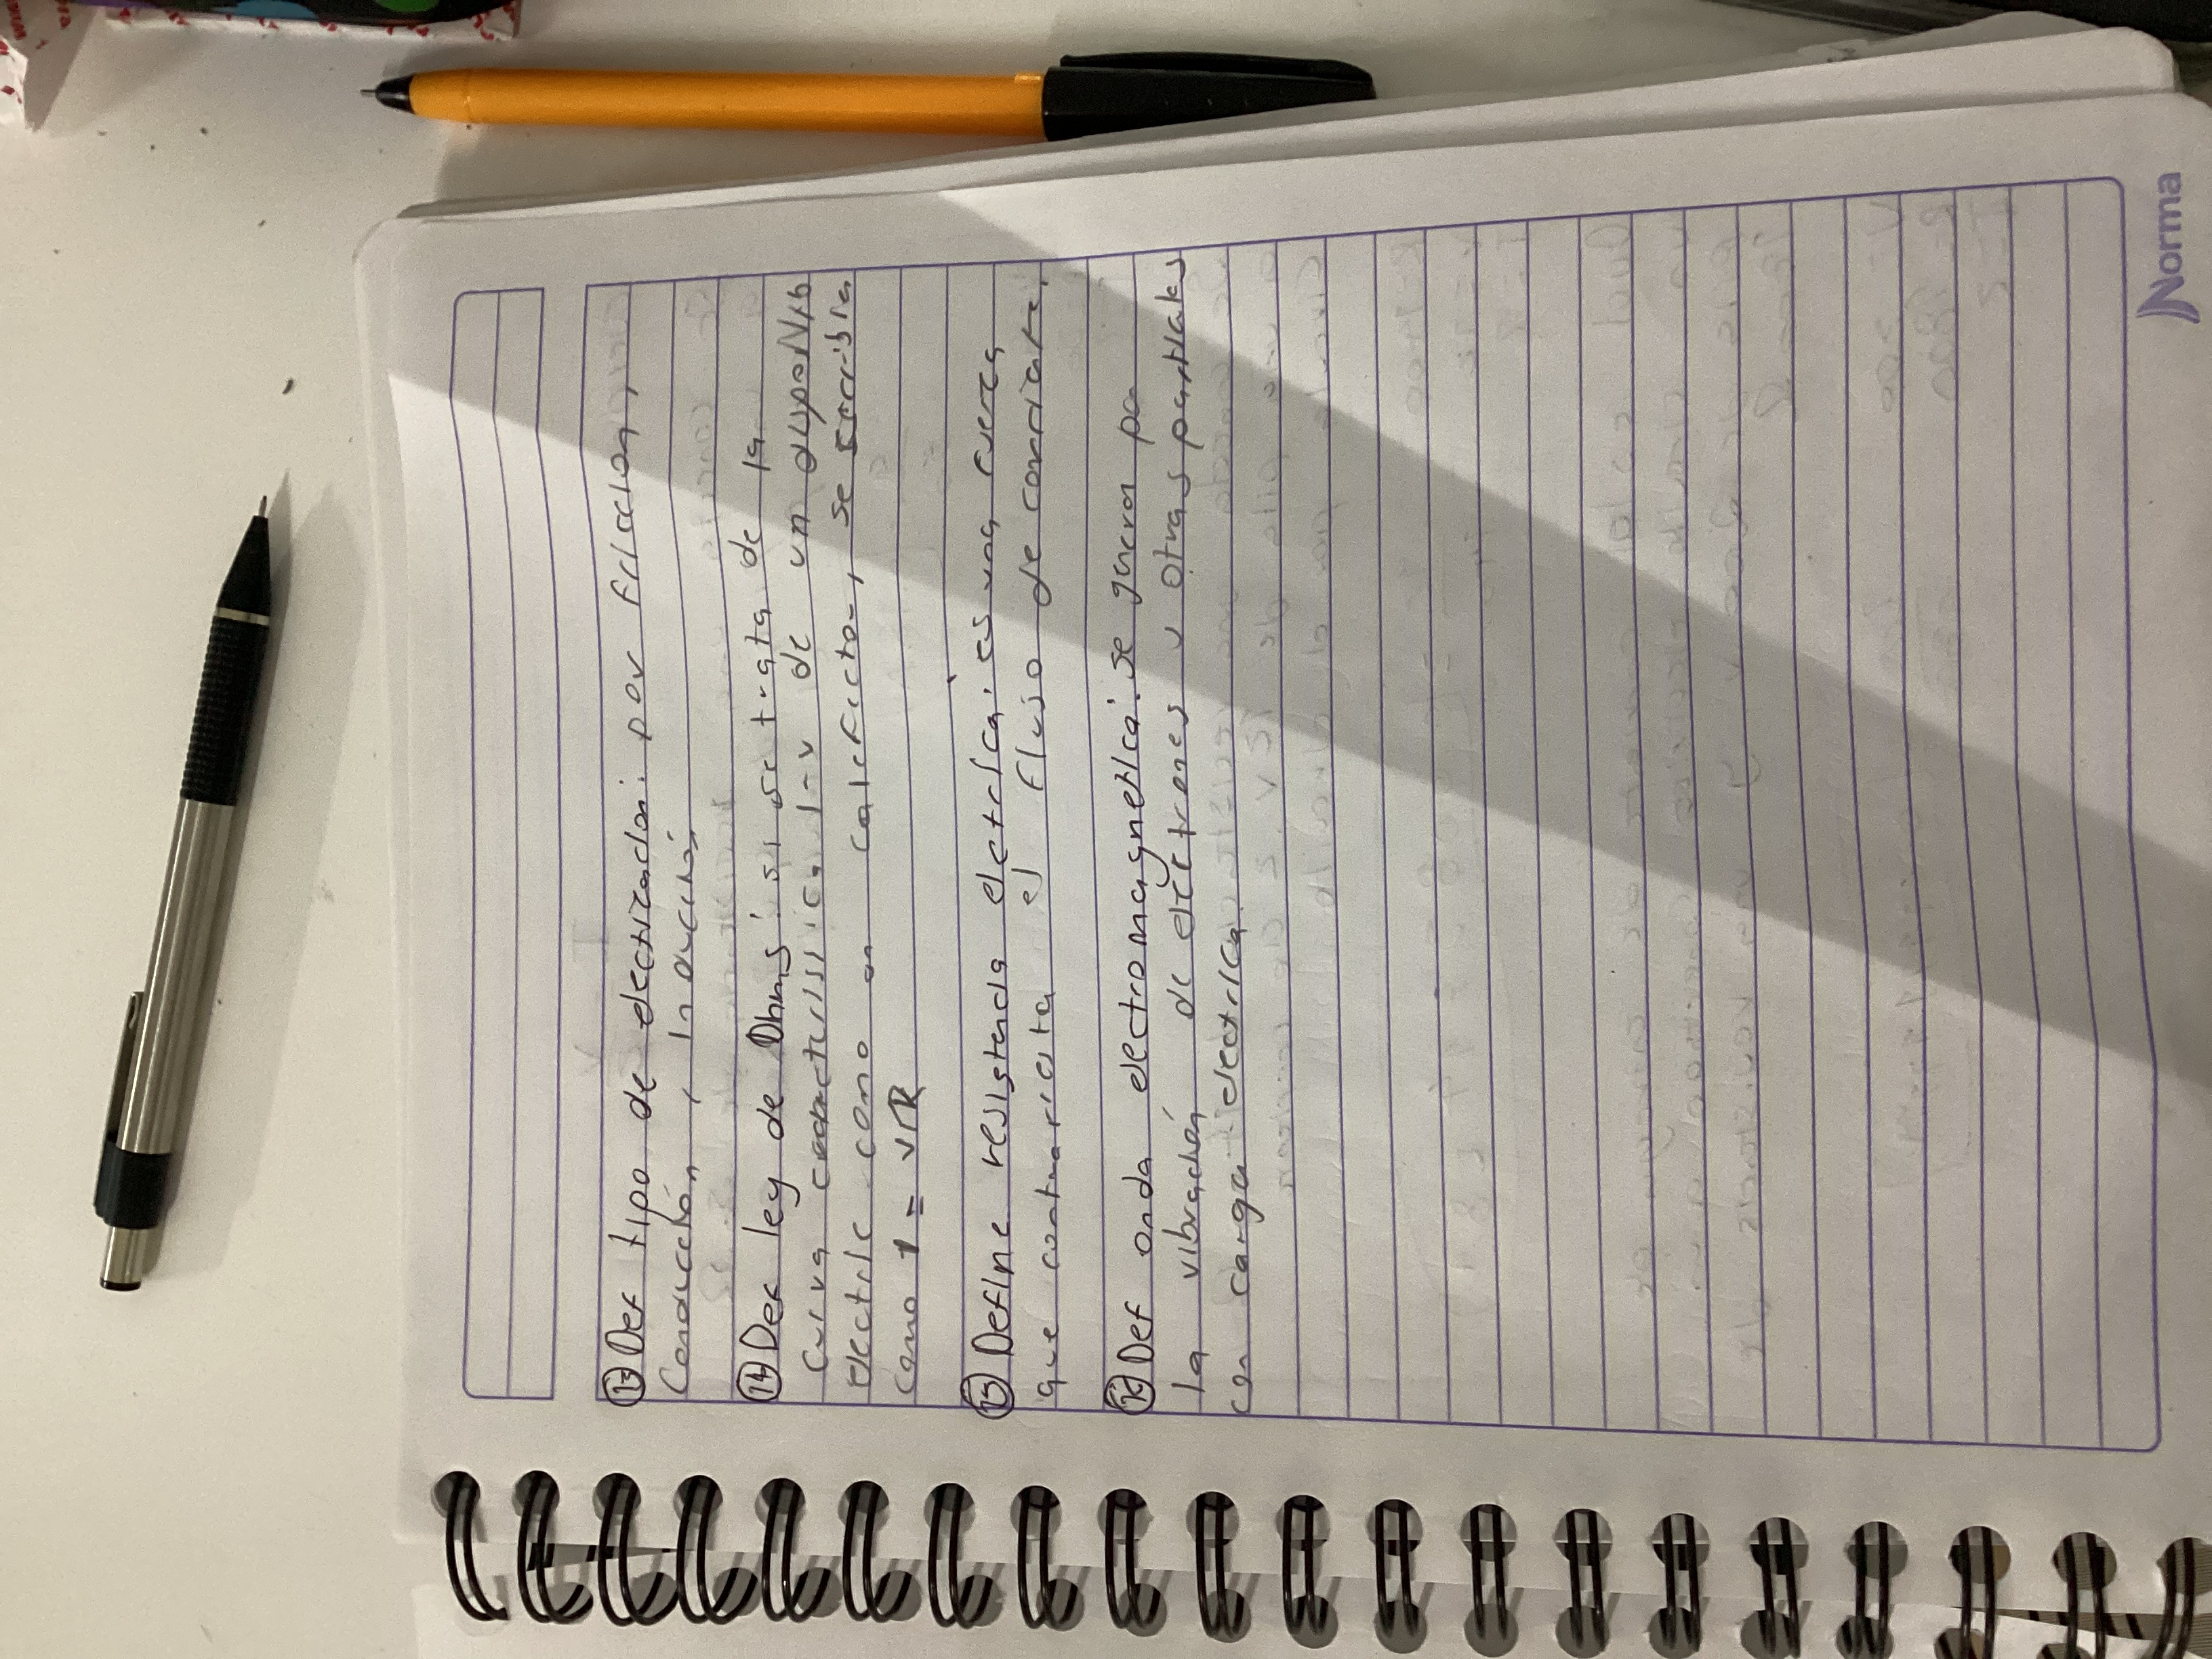 13 Def tipo de electrización: por fricción,
Conducción, Inducción,
14 Def ley de Ohms: si se trata de la
curva característica I-v de un dispositivo
electric como un calefactor, se escribla
como I = V/R
15 Define resistencia electrica: es una fuerza
que contrariesta el flujo de corriente,
16 Def onda electromagnetica: se generan po
la vibración de electrones u otras partiaks
con carga electrica.
Norma